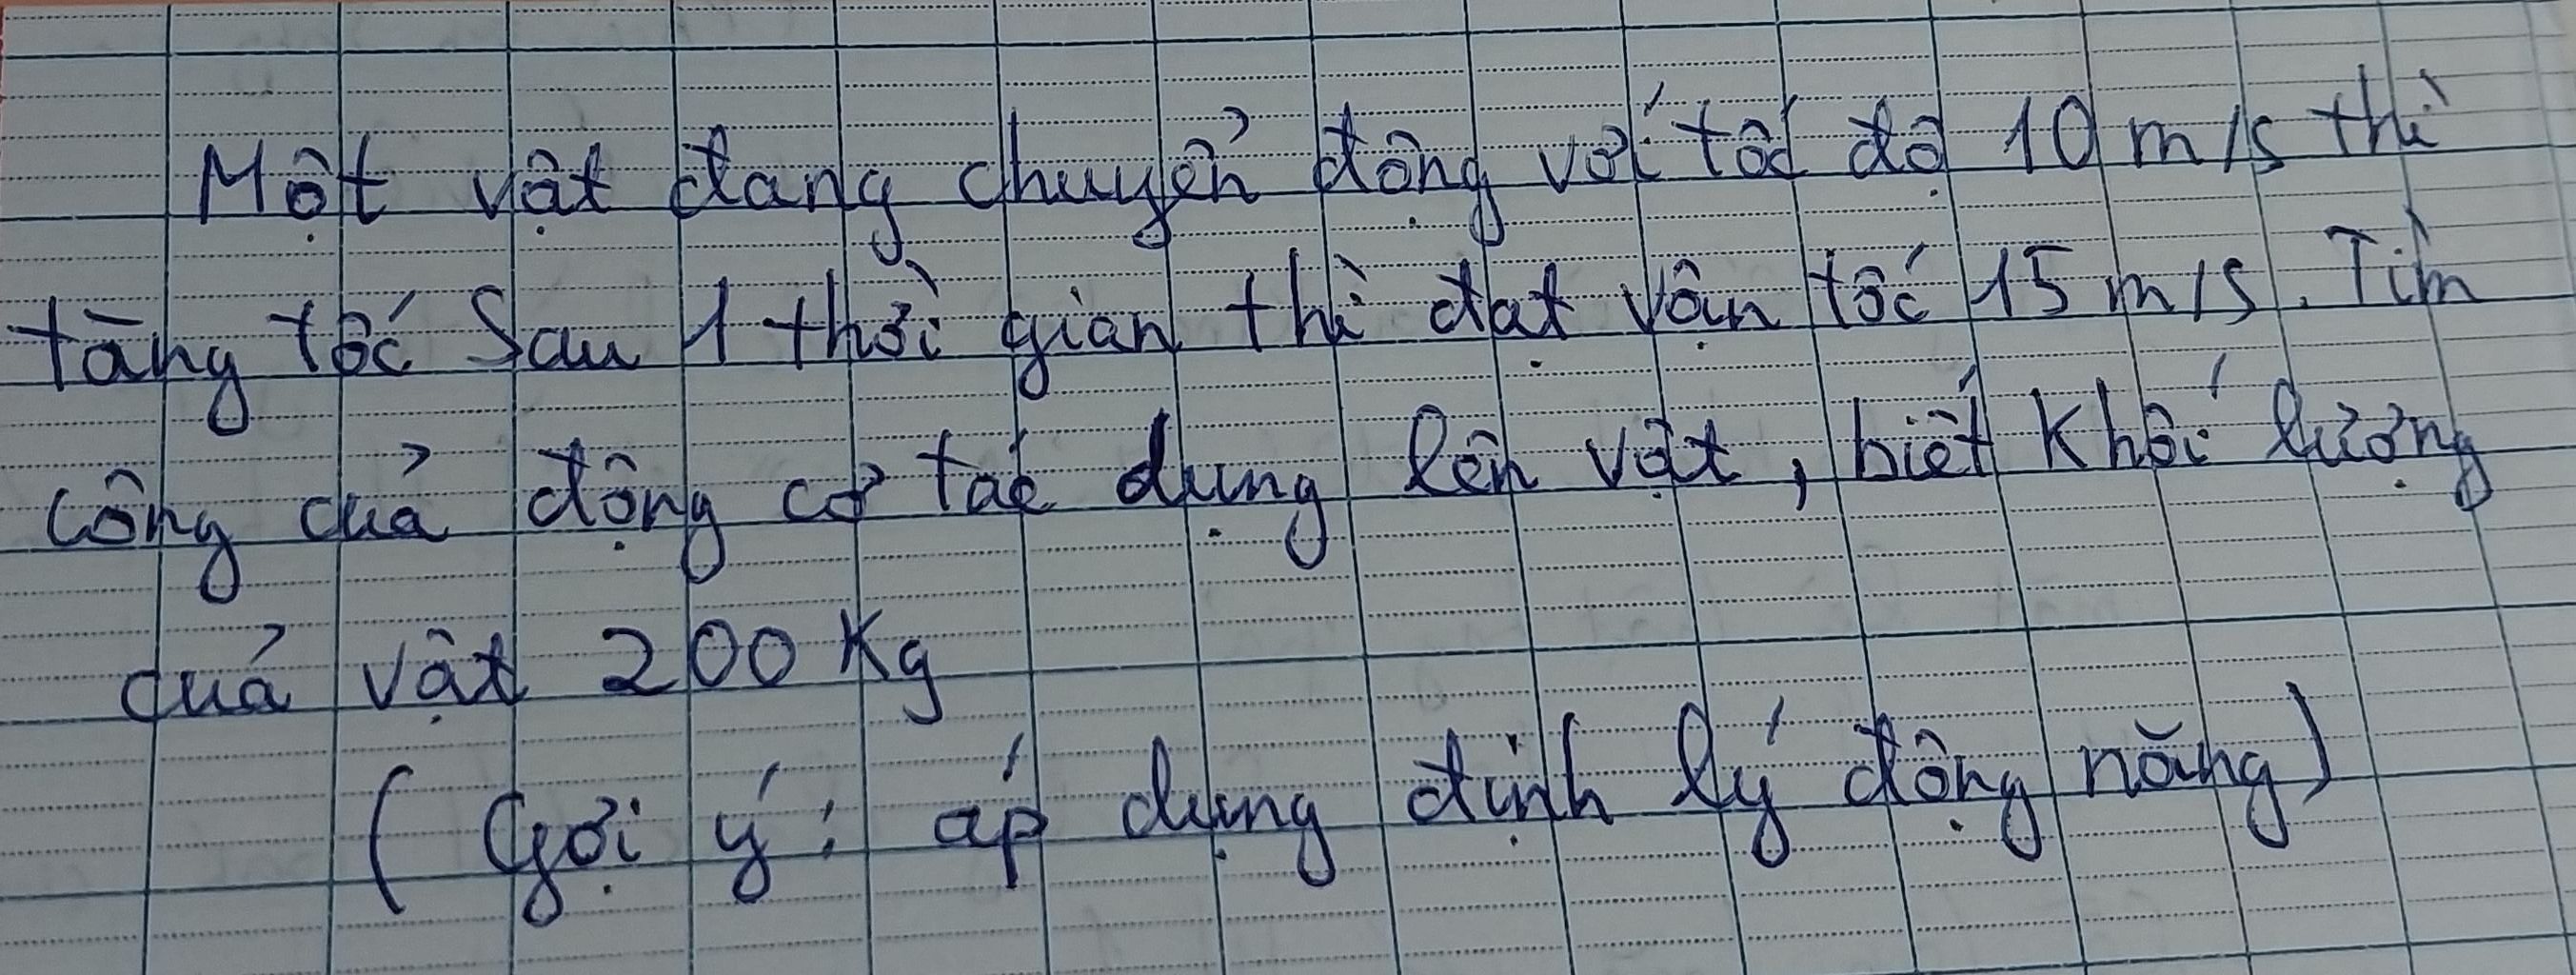 Một vật đang chuyển động với tốc độ 10 m/s thì
tăng tốc Sau 1 thời gian thì đạt vận tốc 15 m/s. Tìm
công của động cơ tác dụng lên vật, biết khối lượng
của vật 200 Kg
(Gợi ý: áp dụng định lý động năng)